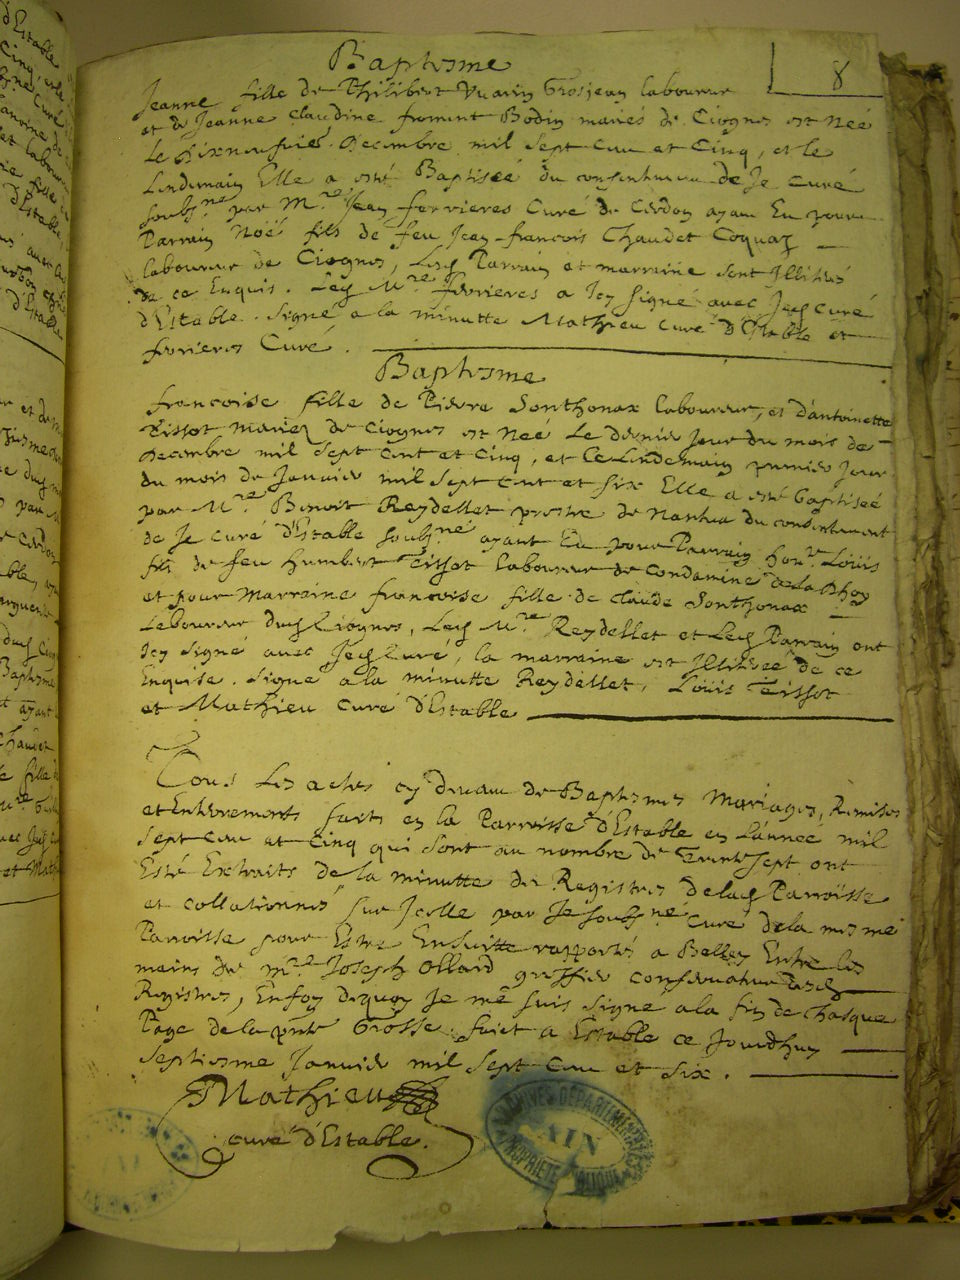 8
Baptesme
Jeanne fille de Philibert Vuarin Grosjean laboureur
et de Jeanne Claudine froment Bodin mariés de Ciognes est Née
Le dixneufie. Decembre mil sept cent et Cinq, et le
Lendemain Elle a esté Baptisée du consentement de Je Curé
soubs.né par M.re Jean ferrieres Curé de Cerdon ayant Eu pour
Parrain Noë fils de feu Jean francois Chaudet Coquaz
laboureur de Ciognes, Lesd. Parrain et marraine sont Illiterés
de ce Enquis. Led. M.re ferrieres a Icy signé avec Jed. Curé
d'Estable. Signé a la minutte Mathieu Curé d'Estable et
ferrieres Curé.
Baptesme
francoise fille de Pierre Sonthonax laboureur, et d'antoinette
Tissot mariez de Ciognes est Neé Le dernier Jour du mois de
Decembre mil sept cent et cinq, et Le Lindemain premier Jour
du mois de Janvier mil sept cent et six Elle a esté baptiseé
par M.re Benoit Reydellet prestre de Nantua du consentement
de Je curé d'Estable soubs.né ayant Eu pour Parrain hon.le Loüis
fils de feu humbert Teissot laboureur de Condamine de la Dhoy
et pour Marraine francoise fille de Claude Sonthonax
Laboureur dud. Ciognes, Led. M.re Reydellet et Led. Parrain ont
Icy signé avec Jed. Curé, la marraine est Illiterée de ce
Enquise. Signé a la minutte Reydellet, Loüis Teissot
et Mathieu curé d'Estable
Tous Les actes cy devant de Baptesmes Mariages, Remises
et Enterrements faits en la Parroisse d'Estable en L'année mil
sept cent et Cinq qui sont au nombre de Trente sept ont
Esté Extraits de la minutte des Registres de lad. Parroisse
et collationnés sur Jcelle par Je soubs.né Curé de la mesme
Parroisse pour Estre Ensuitte rapportés a Belley Entre les
mains de M.re Joseph Ollard greffier conservateur desd.
Registres, En foy dequoy Je me suis signé a la fin de chasque
Page de la p.nte Grosse. fait a Estable ce Jourdhuy
septiesme Janvier mil sept cent et six.
Mathieu
curé d'Estable.
ARCHIVES DÉPARTEMENTALES
AIN
PROPRIÉTÉ PUBLIQUE